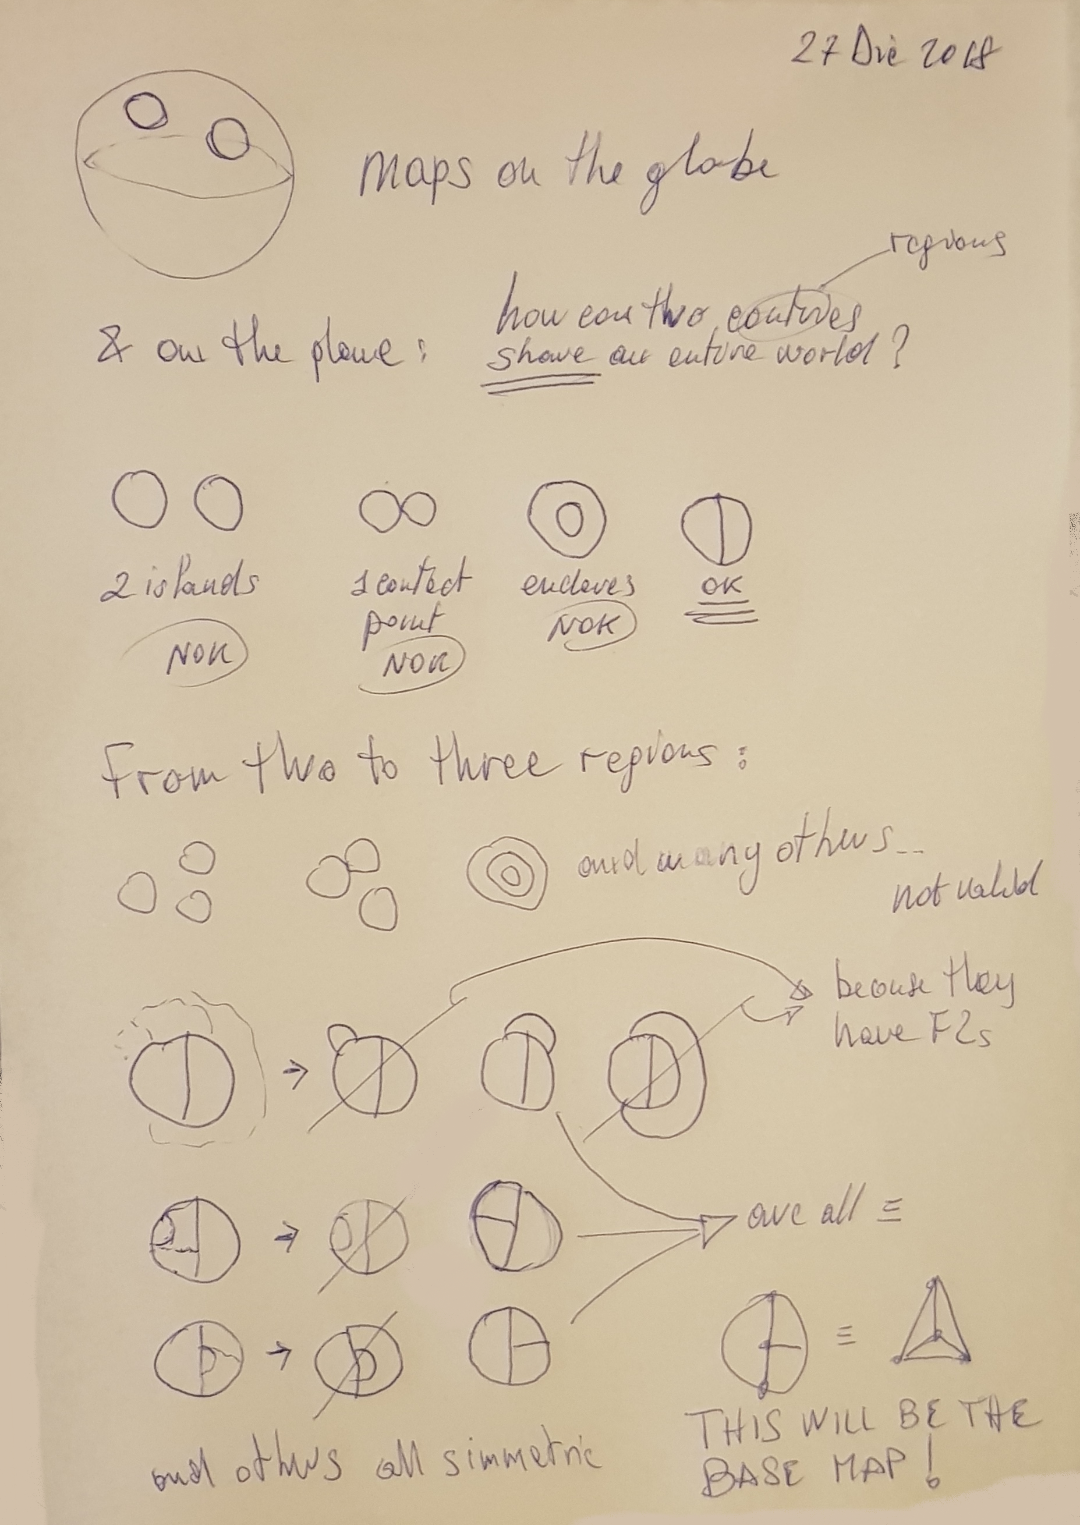 27 Dic 2018
maps on the globe
regions
how can two contries
& on the plane:
share an entire world?
2 islands
1 contact
point
enclaves
OK
NOK
NOK
NOK
From two to three regions:
and many others...
not valid
because they
have F2s
are all ≡
≡
THIS WILL BE THE
BASE MAP!
and others all simmetric